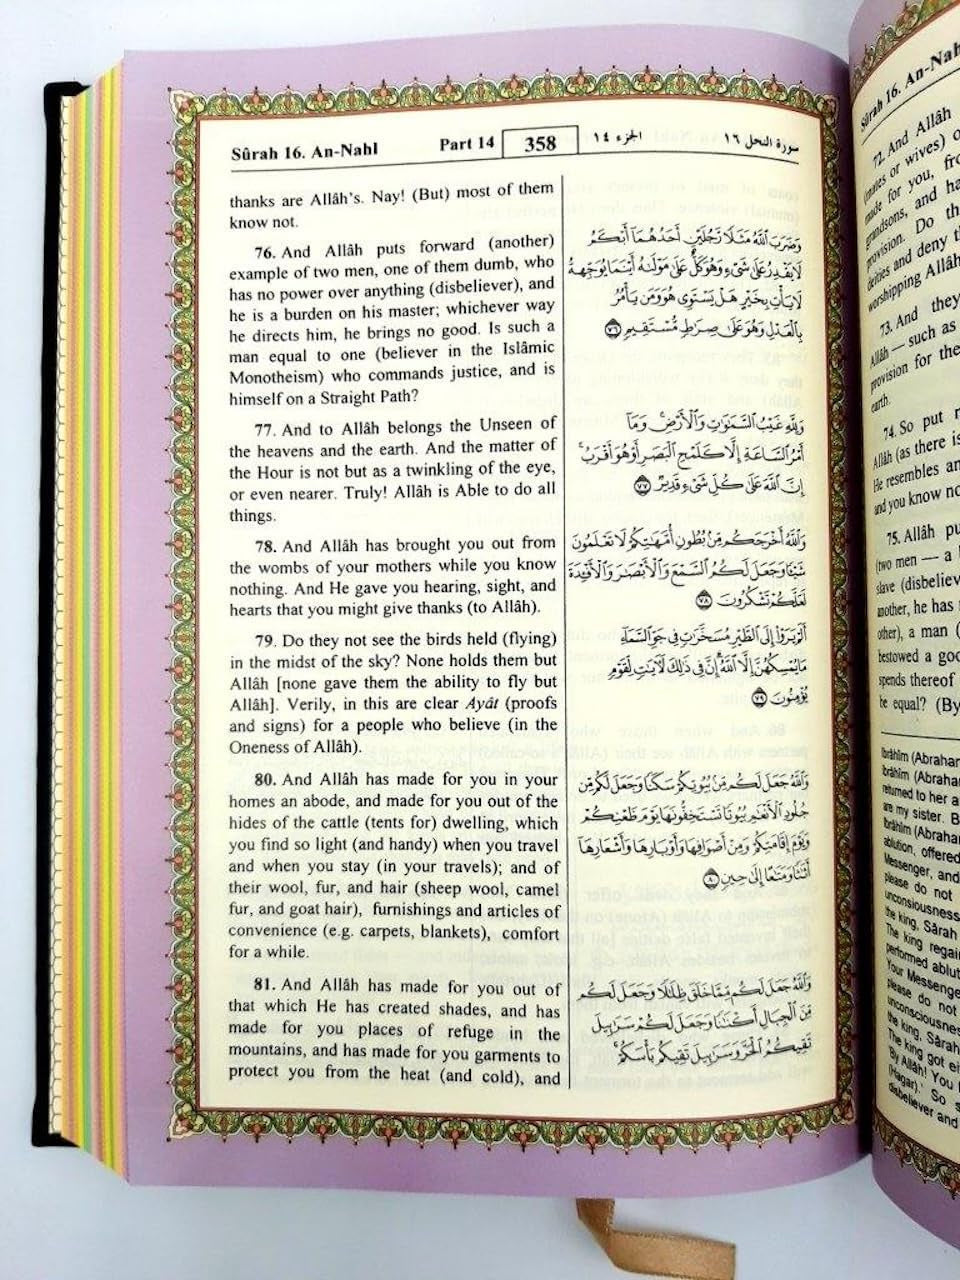 Sûrah 16. An-Nahl Part 14 358 الجزء ١٤ سورة النحل ١٦
thanks are Allâh's. Nay! (But) most of them
know not.
76. And Allâh puts forward (another)
example of two men, one of them dumb, who
has no power over anything (disbeliever), and
he is a burden on his master; whichever way
he directs him, he brings no good. Is such a
man equal to one (believer in the Islâmic
Monotheism) who commands justice, and is
himself on a Straight Path?
77. And to Allâh belongs the Unseen of
the heavens and the earth. And the matter of
the Hour is not but as a twinkling of the eye,
or even nearer. Truly! Allâh is Able to do all
things.
78. And Allâh has brought you out from
the wombs of your mothers while you know
nothing. And He gave you hearing, sight, and
hearts that you might give thanks (to Allâh).
79. Do they not see the birds held (flying)
in the midst of the sky? None holds them but
Allâh [none gave them the ability to fly but
Allâh]. Verily, in this are clear Ayât (proofs
and signs) for a people who believe (in the
Oneness of Allâh).
80. And Allâh has made for you in your
homes an abode, and made for you out of the
hides of the cattle (tents for) dwelling, which
you find so light (and handy) when you travel
and when you stay (in your travels); and of
their wool, fur, and hair (sheep wool, camel
fur, and goat hair), furnishings and articles of
convenience (e.g. carpets, blankets), comfort
for a while.
81. And Allâh has made for you out of
that which He has created shades, and has
made for you places of refuge in the
mountains, and has made for you garments to
protect you from the heat (and cold), and
وَضَرَبَ ٱللَّهُ مَثَلًا رَّجُلَيْنِ أَحَدُهُمَآ أَبْكَمُ
لَا يَقْدِرُ عَلَىٰ شَىْءٍ وَهُوَ كَلٌّ عَلَىٰ مَوْلَىٰهُ أَيْنَمَا يُوَجِّههُّ
لَا يَأْتِ بِخَيْرٍ هَلْ يَسْتَوِى هُوَ وَمَن يَأْمُرُ
بِٱلْعَدْلِ وَهُوَ عَلَىٰ صِرَٰطٍ مُّسْتَقِيمٍ ٧٦
وَلِلَّهِ غَيْبُ ٱلسَّمَٰوَٰتِ وَٱلْأَرْضِ وَمَآ
أَمْرُ ٱلسَّاعَةِ إِلَّا كَلَمْحِ ٱلْبَصَرِ أَوْ هُوَ أَقْرَبُ
إِنَّ ٱللَّهَ عَلَىٰ كُلِّ شَىْءٍ قَدِيرٌ ٧٧
وَٱللَّهُ أَخْرَجَكُم مِّنۢ بُطُونِ أُمَّهَٰتِكُمْ لَا تَعْلَمُونَ
شَيْـًٔا وَجَعَلَ لَكُمُ ٱلسَّمْعَ وَٱلْأَبْصَٰرَ وَٱلْأَفْـِٔدَةَ
لَعَلَّكُمْ تَشْكُرُونَ ٧٨
أَلَمْ يَرَوْا۟ إِلَى ٱلطَّيْرِ مُسَخَّرَٰتٍ فِى جَوِّ ٱلسَّمَآءِ
مَا يُمْسِكُهُنَّ إِلَّا ٱللَّهُ إِنَّ فِى ذَٰلِكَ لَـَٔايَٰتٍ لِّقَوْمٍ
يُؤْمِنُونَ ٧٩
وَٱللَّهُ جَعَلَ لَكُم مِّنۢ بُيُوتِكُمْ سَكَنًا وَجَعَلَ لَكُم مِّن
جُلُودِ ٱلْأَنْعَٰمِ بُيُوتًا تَسْتَخِفُّونَهَا يَوْمَ ظَعْنِكُمْ
وَيَوْمَ إِقَامَتِكُمْ وَمِنْ أَصْوَافِهَا وَأَوْبَارِهَا وَأَشْعَارِهَآ
أَثَٰثًا وَمَتَٰعًا إِلَىٰ حِينٍ ٨٠
وَٱللَّهُ جَعَلَ لَكُم مِّمَّا خَلَقَ ظِلَٰلًا وَجَعَلَ لَكُم
مِّنَ ٱلْجِبَالِ أَكْنَٰنًا وَجَعَلَ لَكُمْ سَرَٰبِيلَ
تَقِيكُمُ ٱلْحَرَّ وَسَرَٰبِيلَ تَقِيكُم بَأْسَكُمْ
Sûrah 16. An-Nah
72. And Allâh
(mates or wives) o
made for you, fro
grandsons, and ha
provision. Do th
deities and deny th
worshipping Allâh
73. And they
Allâh — such as
provision for the
earth.
74. So put n
Allâh (as there is
He resembles an
and you know no
75. Allâh pu
(two men — a b
slave (disbeliev
another, he has n
other), a man (
bestowed a goo
spends thereof
be equal? (By
Ibrâhîm (Abrahar
Ibrâhîm (Abrahar
returned to her a
are my sister. B
Ibrâhîm (Abrahar
ablution, offered
Messenger, and
please do not
unconsciousness
the king, Sârah
The king regain
performed ablut
Your Messenge
please do not
unconsciousnes
the king, Sârah
The king got ei
'By Allâh! You h
(Hagar).' So s
disbeliever and